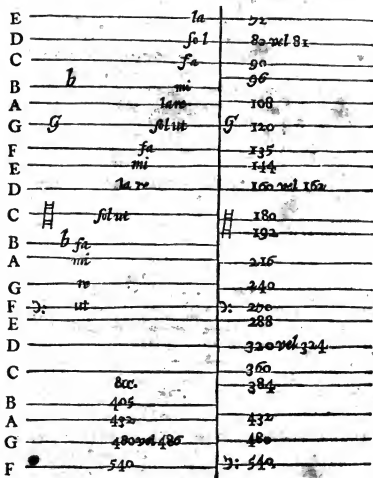 E la 72
D sol 80 vel 81
C fa 90
B b mi 96
A lare 108
G g sol ut g 120
F fa 135
E mi 144
D la re 160 vel 162
C sol ut 180
192
B b fa
A mi 216
G re 240
F ut 270
E 288
D 320 vel 324
C 360
&c. 384
B 405
A 432 432
G 480 vel 486 480
F 540 540